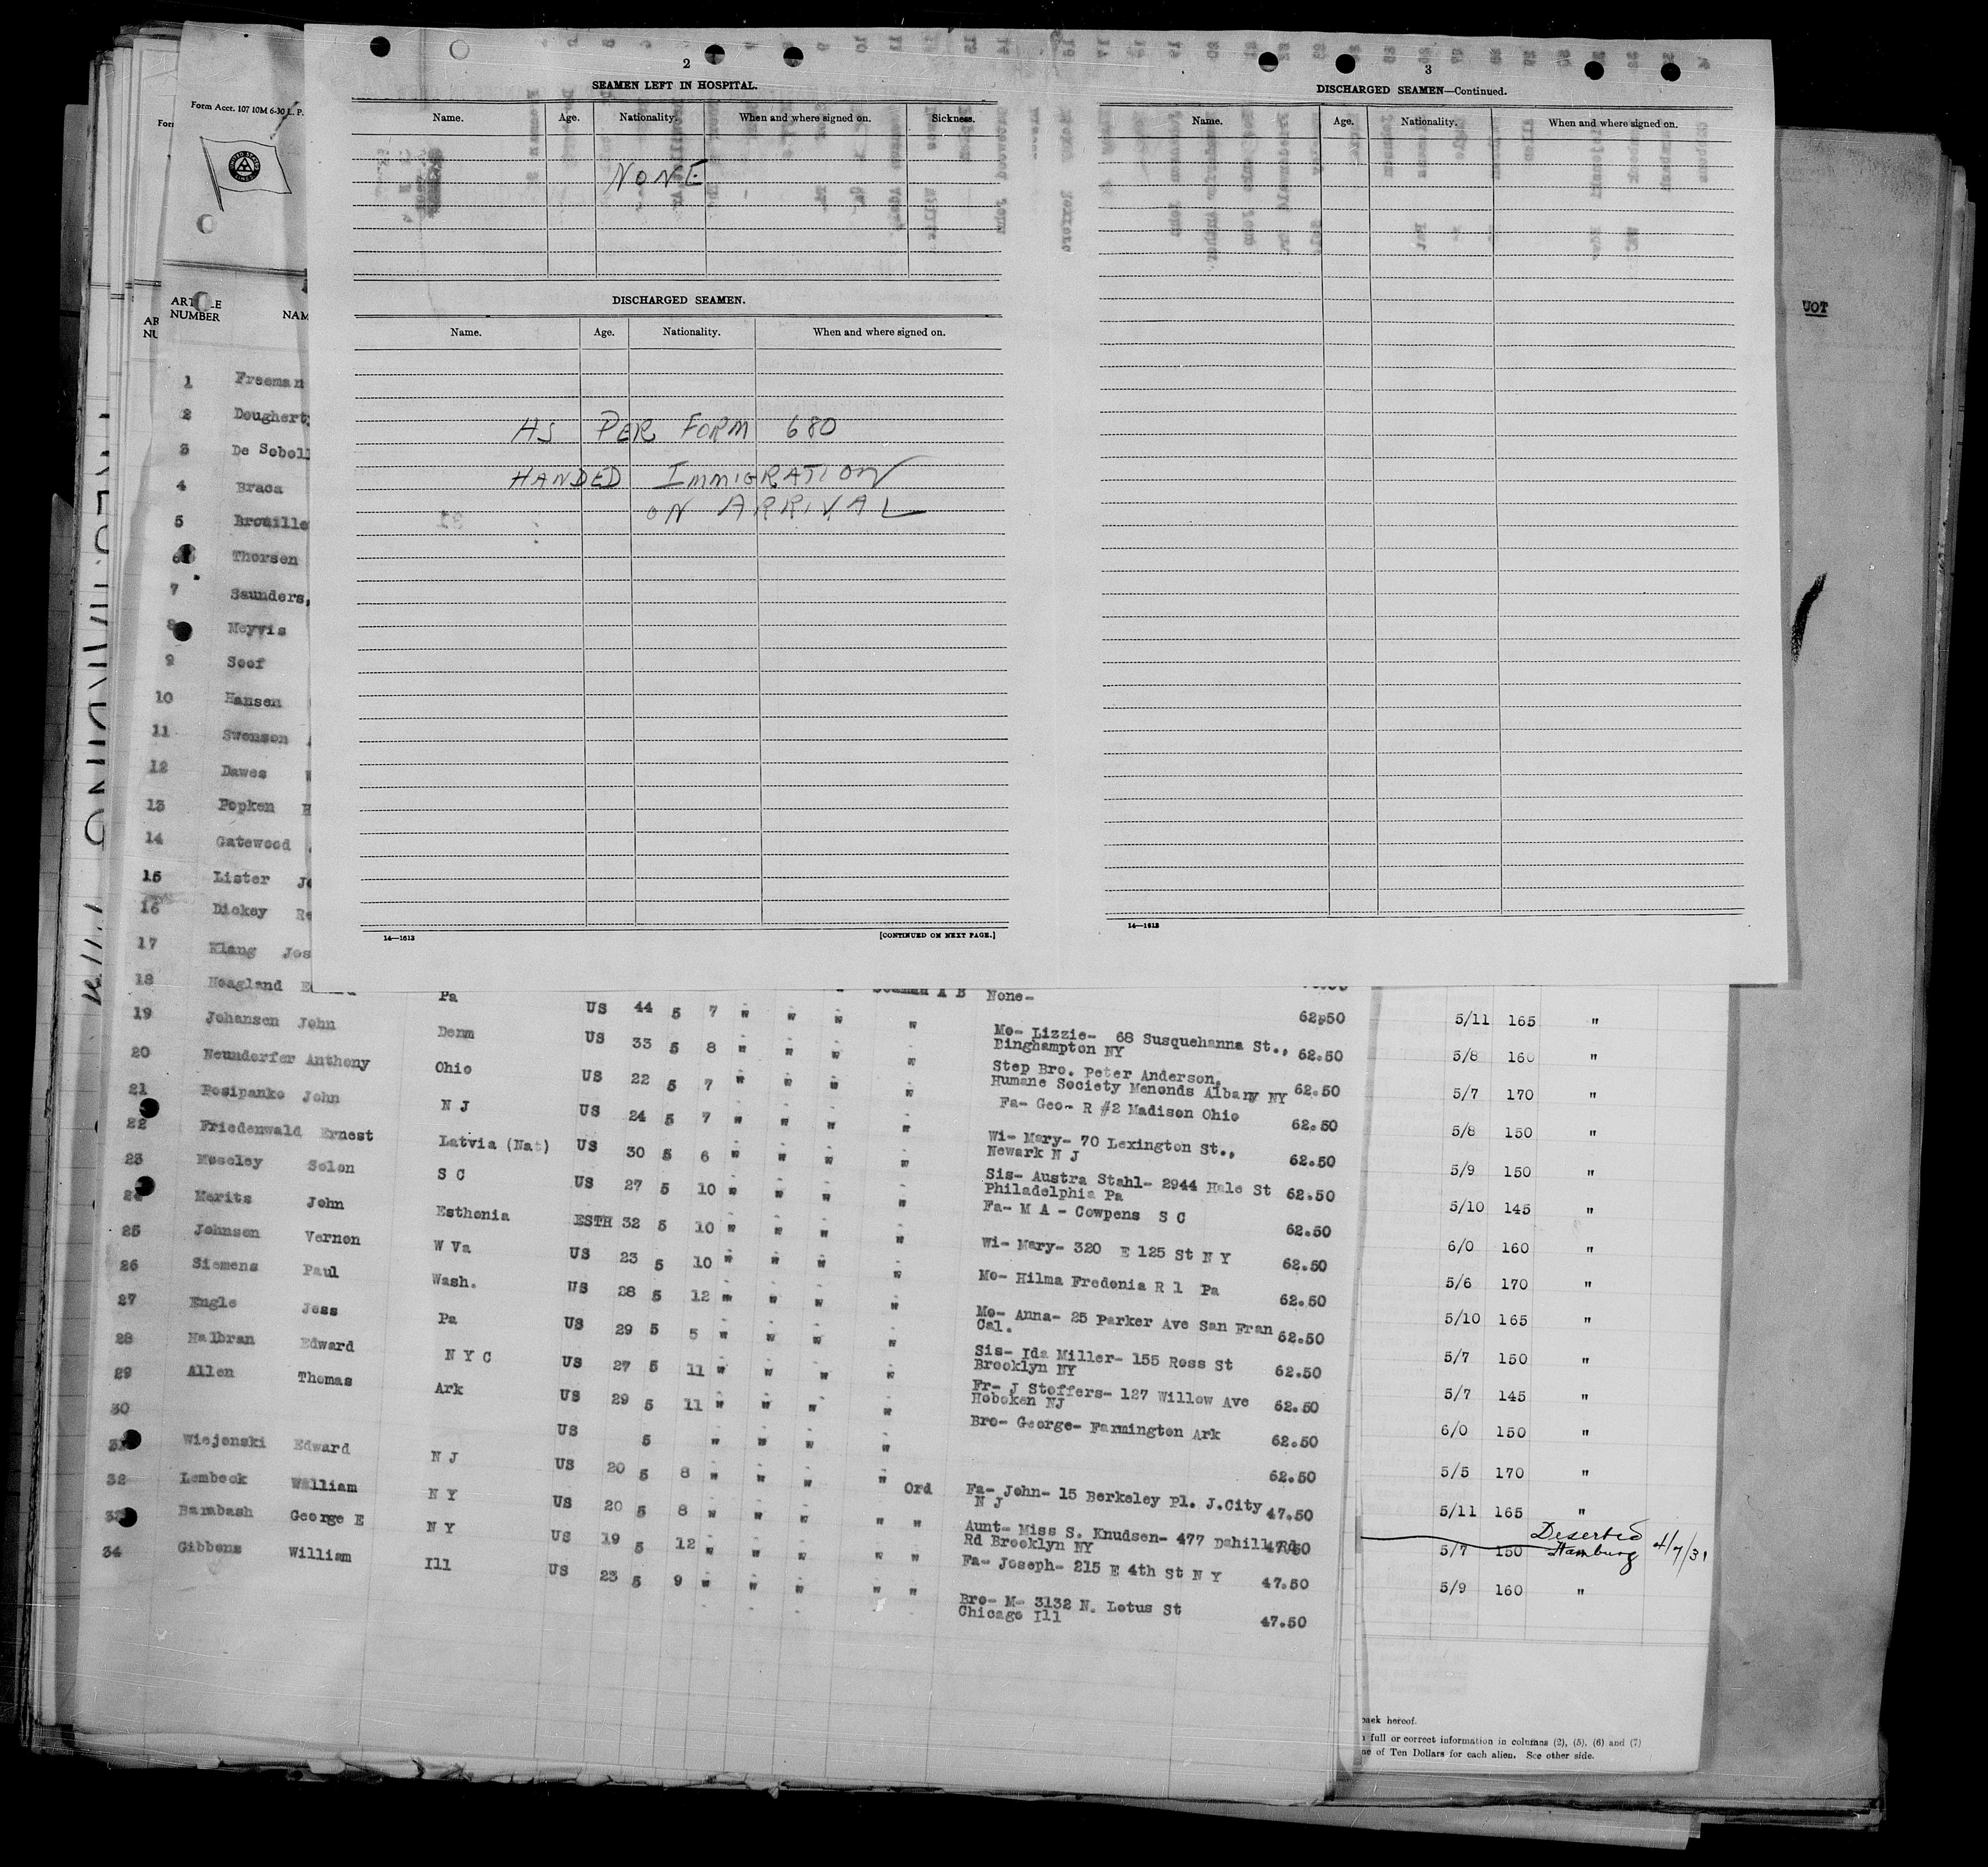 2
SEAMEN LEFT IN HOSPITAL.
Name. Age. Nationality. When and where signed on. Sickness.
NONE
DISCHARGED SEAMEN.
Name. Age. Nationality. When and where signed on.
AS PER FORM 680
HANDED IMMIGRATION
ON ARRIVAL
14—1613 [CONTINUED ON NEXT PAGE.]
3
DISCHARGED SEAMEN—Continued.
Name. Age. Nationality. When and where signed on.
14—1613
Form Acct. 107 10M 6-30 L. P.
ARTICLE
NUMBER NAM
1 Freeman
2 Dougherty
3 De Sobell
4 Braca
5 Brouille
6 Thorsen
7 Saunders,
8 Meyvis
9 Seef
10 Hansen
11 Swenson
12 Dawes W
13 Popken H
14 Gatewood
15 Lister Jo
16 Dickey Re
17 Klang Jos
18 Hoagland Pa US 44 5 7 " " " " None- 62.50
19 Johansen John Denm US 33 5 8 " " " " Mo- Lizzie- 68 Susquehanna St.,
Binghampton NY 62.50
20 Neunderfer Anthony Ohio US 22 5 7 " " " " Step Bro. Peter Anderson,
Humane Society Menonds Albany NY 62.50
21 Posipanko John N J US 24 5 7 " " " " Fa- Geo- R #2 Madison Ohio 62.50
22 Friedenwald Ernest Latvia (Nat) US 30 5 6 " " " " Wi- Mary- 70 Lexington St.,
Newark N J 62.50
23 Moseley Solon S C US 27 5 10 " " " " Sis- Austra Stahl- 2944 Hale St
Philadelphia Pa 62.50
24 Marits John Esthonia ESTH 32 5 10 " " " " Fa- M A - Cowpens S C 62.50
25 Johnson Vernon W Va US 23 5 10 " " " " Wi- Mary- 320 E 125 St N Y 62.50
26 Siemens Paul Wash. US 28 5 12 " " " " Mo- Hilma Fredonia R 1 Pa 62.50
27 Engle Jess Pa US 29 5 5 " " " " Mo- Anna- 25 Parker Ave San Fran
Cal. 62.50
28 Halbran Edward N Y C US 27 5 11 " " " " Sis- Ida Miller- 155 Ross St
Brooklyn NY 62.50
29 Allen Thomas Ark US 29 5 11 " " " " Fr- J Stoffers- 127 Willow Ave
Hoboken NJ 62.50
30 US 5 " " " " Bro- George- Farmington Ark 62.50
62.50
31 Wiejenski Edward N J US 20 5 8 " " " " Ord Fa- John- 15 Berkeley Pl. J.City
N J 47.50
32 Lembeck William N Y US 20 5 8 " " " " " Aunt- Miss S. Knudsen- 477 Dahill Rd
Rd Brooklyn NY 47.50
33 Barabash George E N Y US 19 5 12 " " " " " Fa- Joseph- 215 E 4th St N Y 47.50
34 Gibbens William Ill US 23 5 9 " " " " " Bro- M- 3132 N. Lotus St
Chicago Ill 47.50
5/11 165 "
5/8 160 "
5/7 170 "
5/8 150 "
5/9 150 "
5/10 145 "
6/0 160 "
5/6 170 "
5/10 165 "
5/7 150 "
5/7 145 "
6/0 150 "
5/5 170 "
5/11 165 "
Deserted
5/7 150 Hamburg 4/7/31
5/9 160 "
back hereof.
full or correct information in columns (2), (5), (6) and (7)
ne of Ten Dollars for each alien. See other side.
UOT